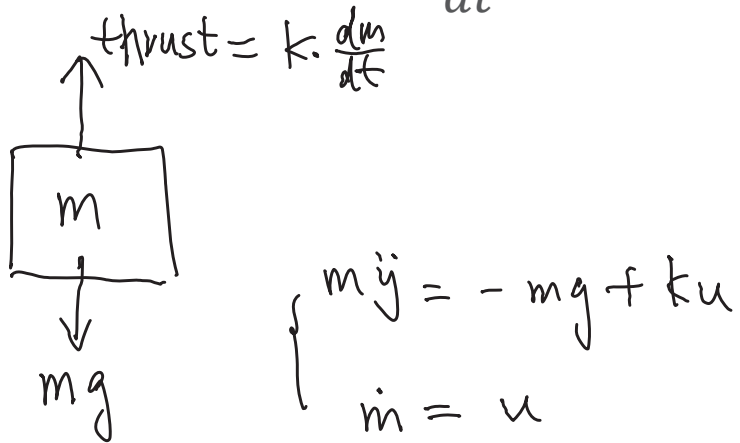 thrust = k. dm/dt
m
mg
mÿ = - mg + ku
ṁ = u